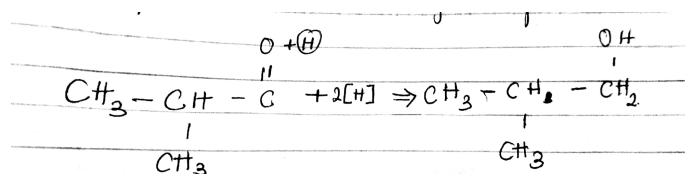 O +Ⓗ OH
CH₃ – CH – C + 2[H] ⇒ CH₃ – CH – CH₂
CH₃ CH₃